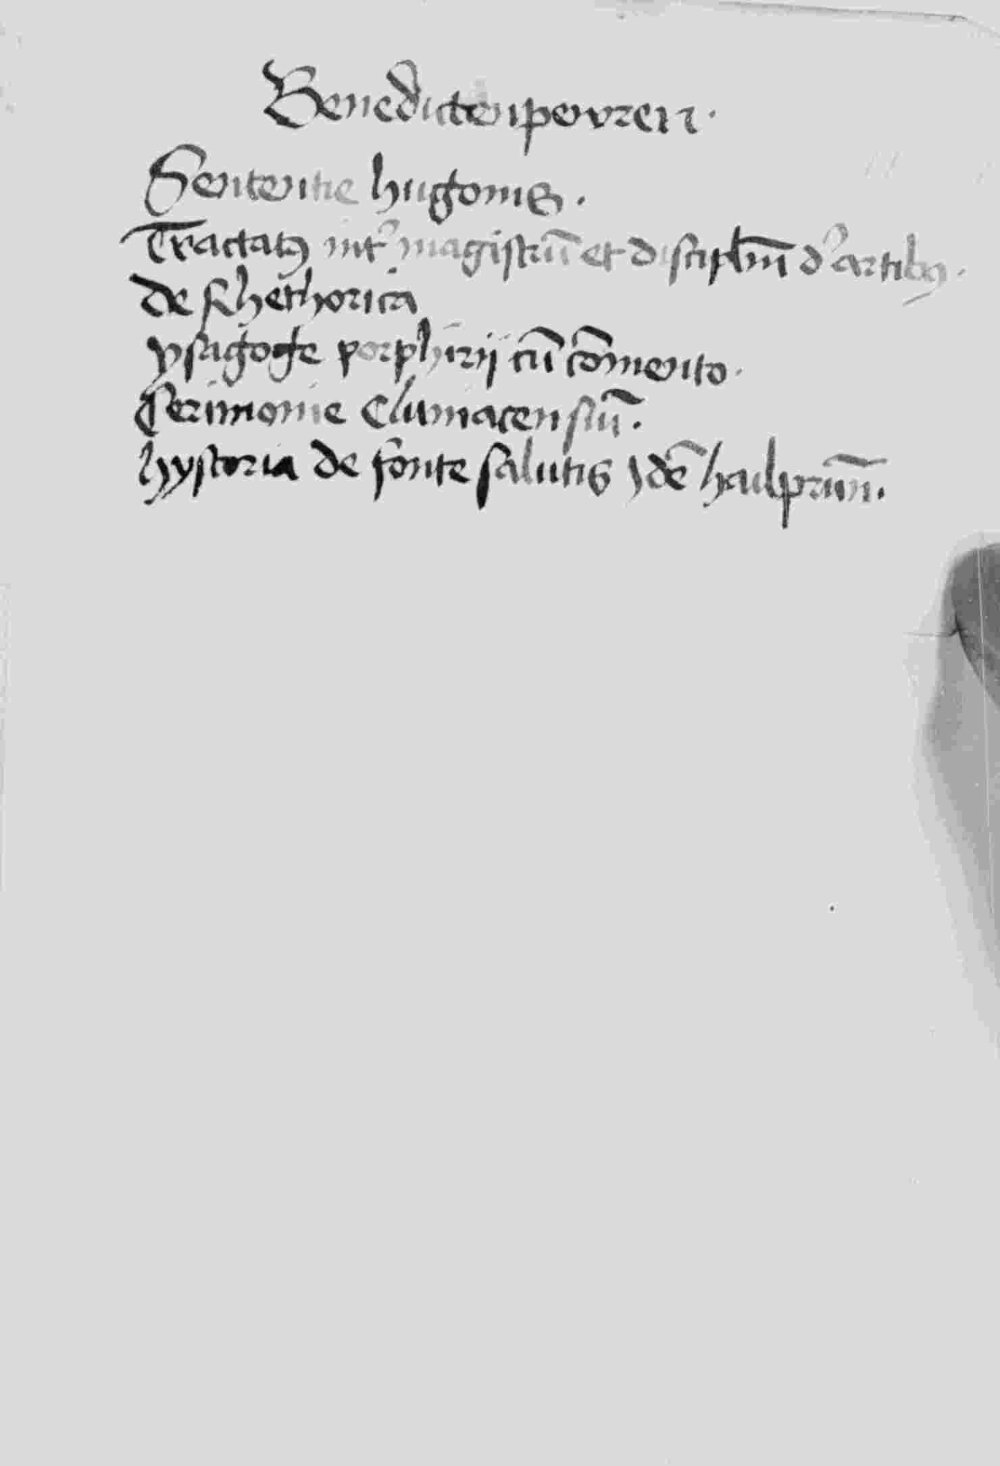 Benedictenpewren.
Sententie hugonis.
Tractatꝯ int᷑ magistrū et discipl̄m d᷑ artibꝯ.
de Rhethorica
ysagoge porphirij cū cōmento.
Cerimonie Cluniacensiū.
hystoria de fonte salutis ydē hailprūn̄.